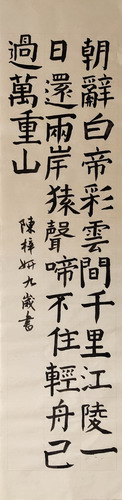 朝辭白帝彩雲間千里江陵一
日還兩岸猿聲啼不住輕舟已
過萬重山
陳梓妍九歲書